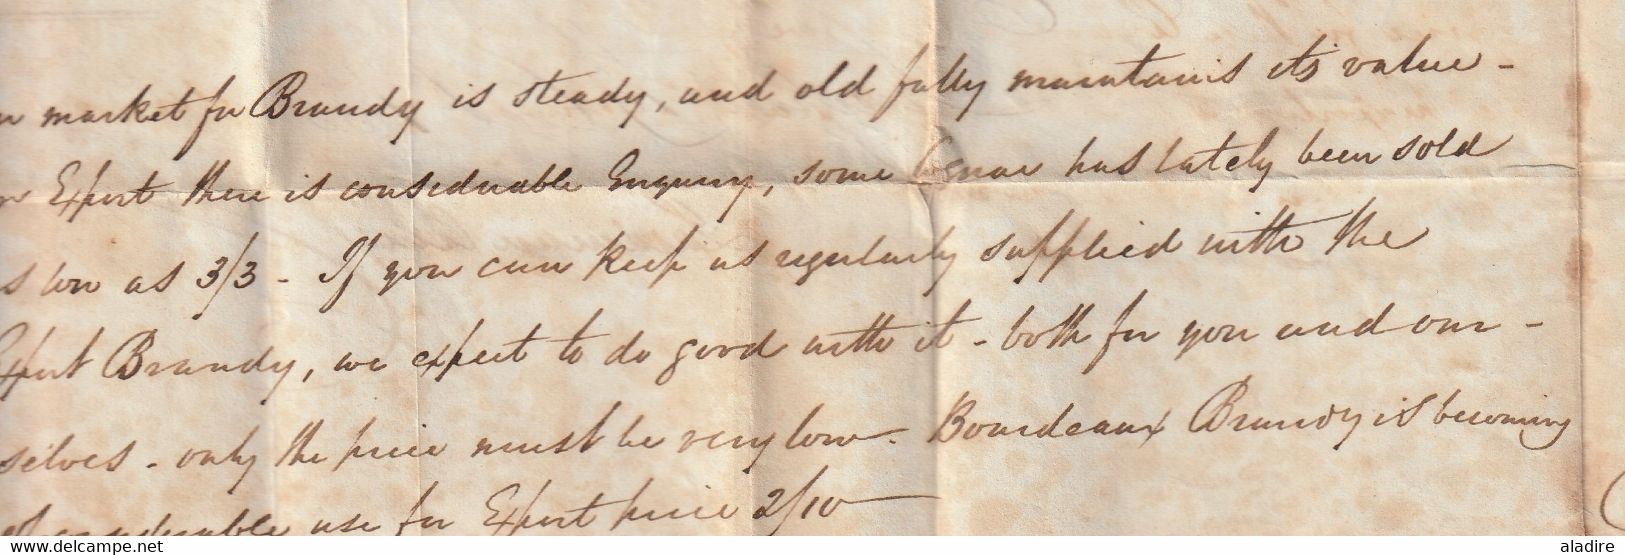 market for Brandy is steady, and old fully maintains its value -
Export there is considerable Enquiry, some has lately been sold
low as 3/3 - If you can keep us regularly supplied with the
Export Brandy, we expect to do good with it - both for you and our -
selves - only the price must be very low - Bourdeaux Brandy is becoming
of considerable use for Export price 2/10
aladire